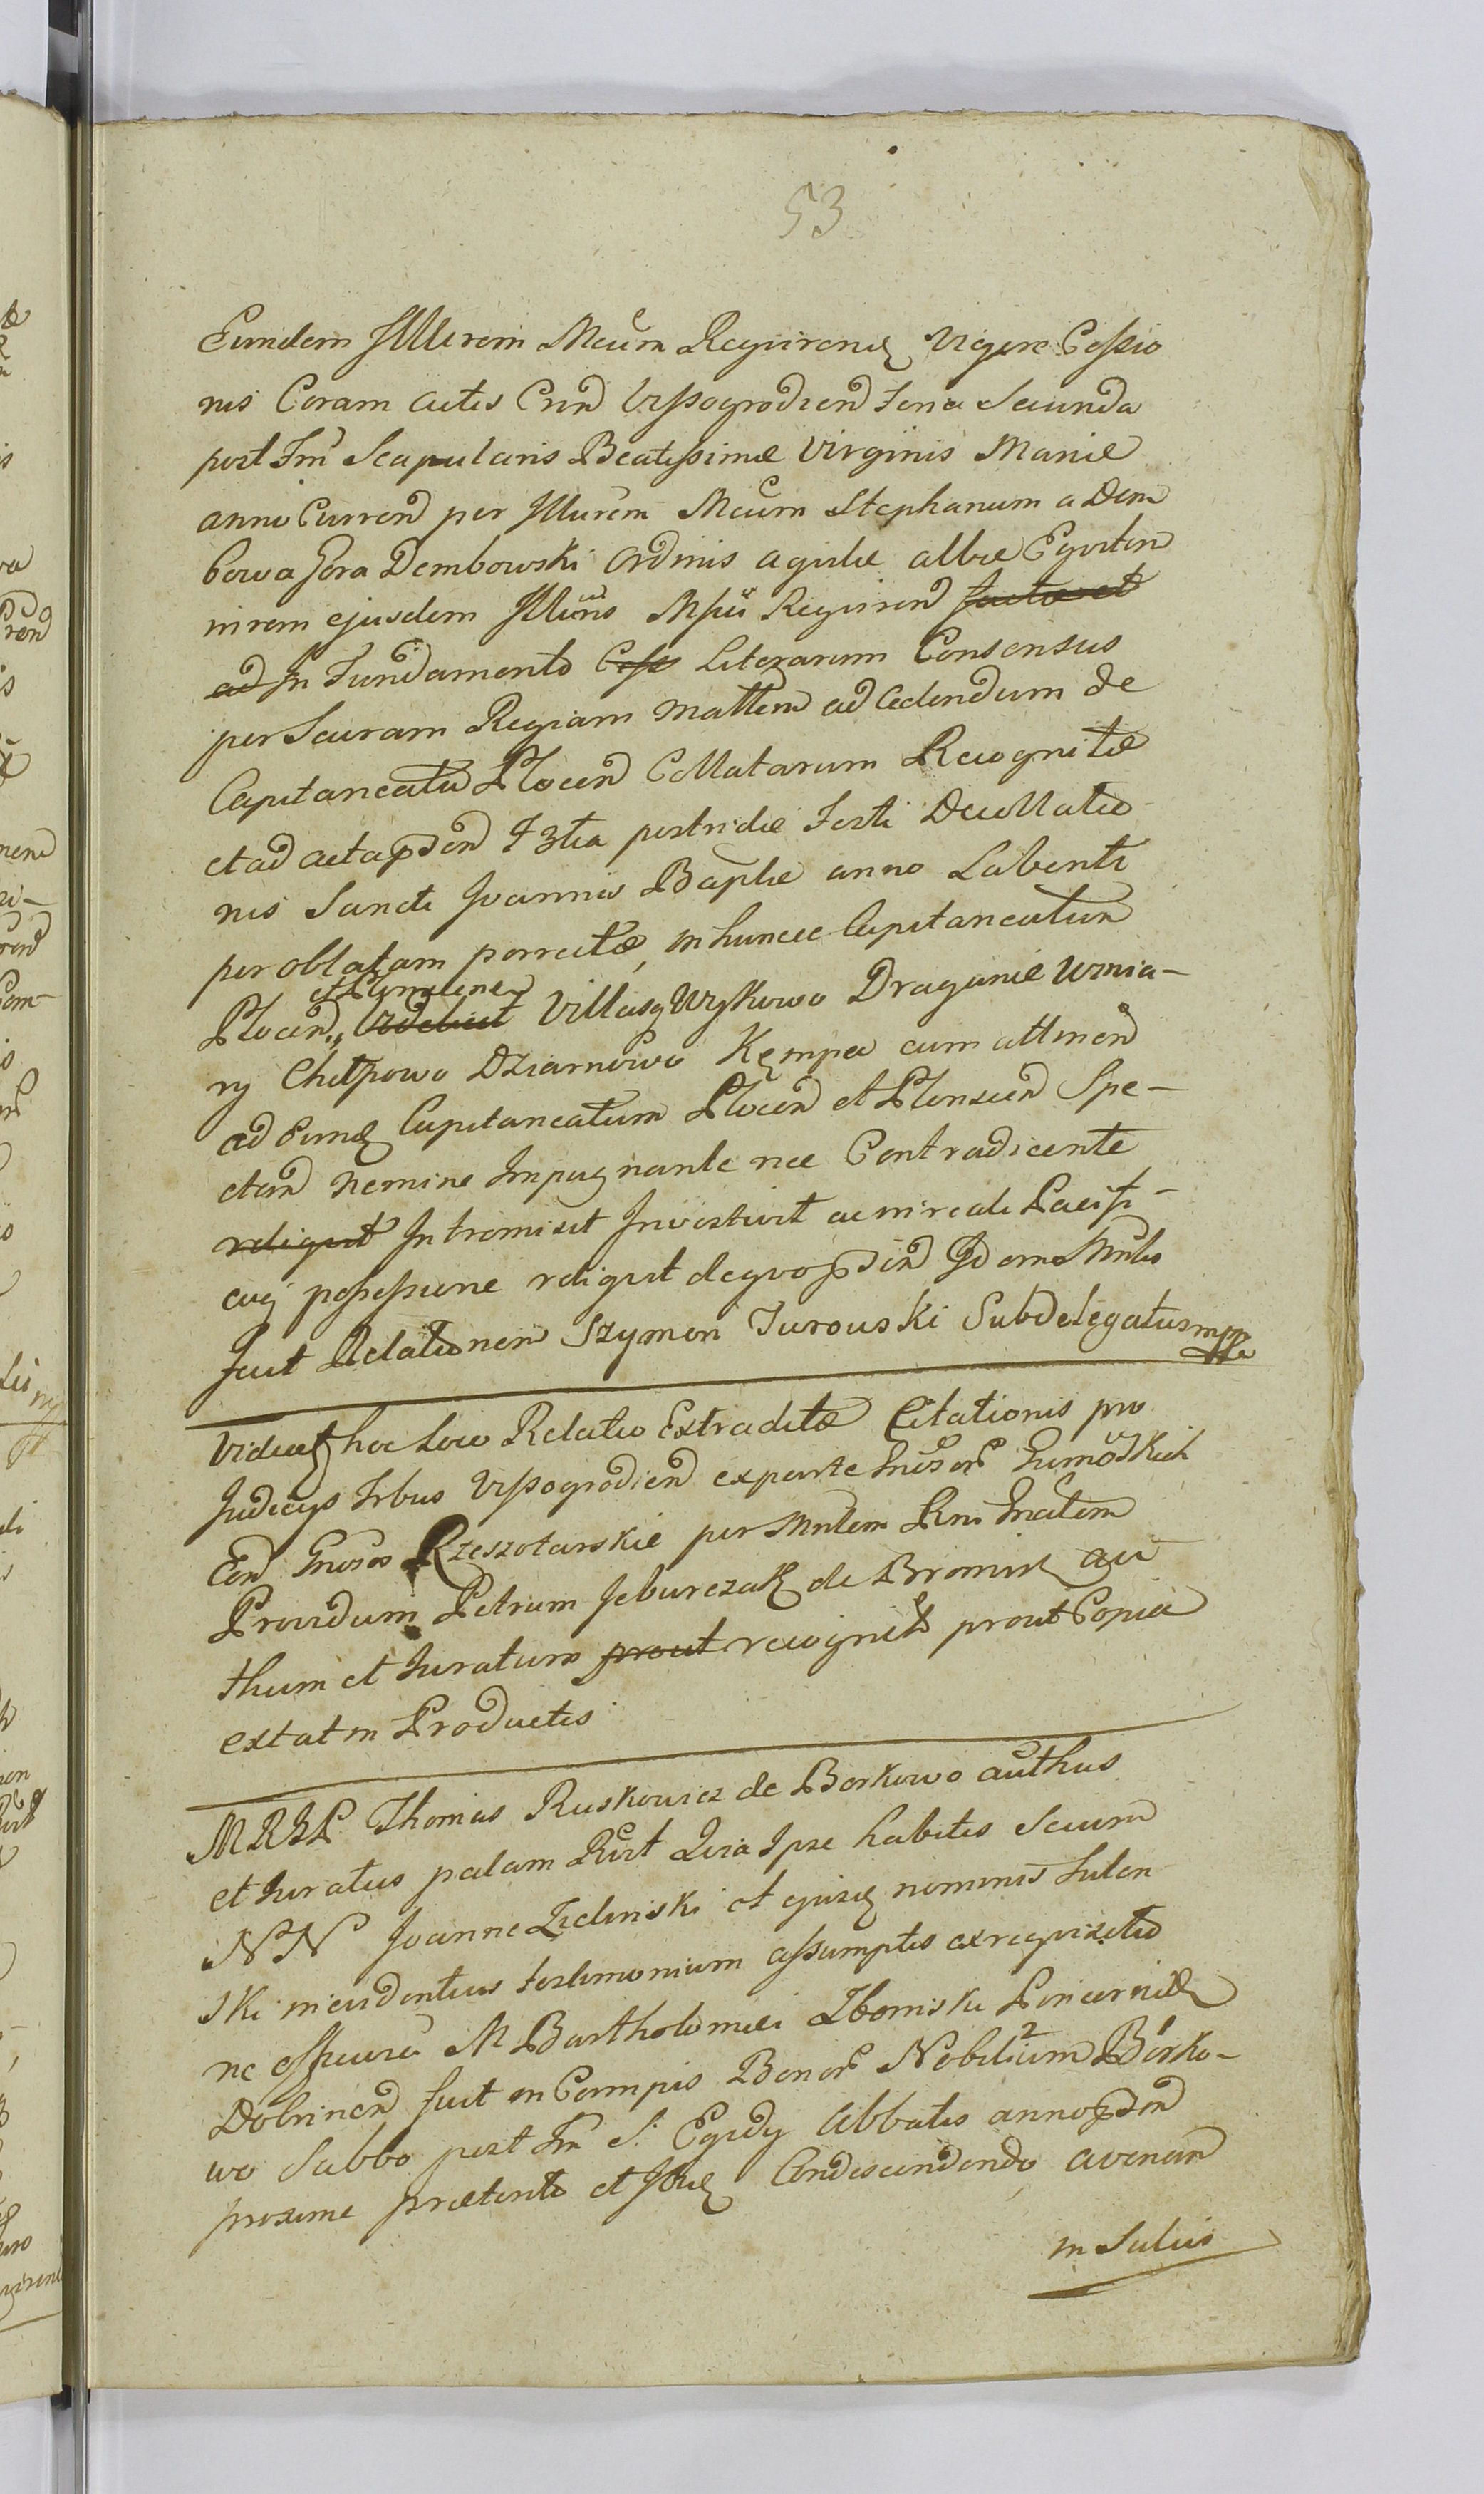 53
Eundem Illlrem Mcum Requirenq Vigore Cessio
nis Coram actis Crnd Vyssogrodiend Feria Secunda
post Fm Scapularis Beatissimæ Virginis Mariæ
anno Currend per Illurem Mcum Stephanum a Dem
bowa Gora Dembowski Ordinis aquilæ albæ Equitem
in rem ejusdem Mpci Requirend facta et
ad In Fundamento Cess Literarum Consensus
per Sacram Regiam Mattem ad Cedendum de
Capitaneatu Plocend Collatarum Recognitæ
et ad acta Fza postridie Festi Decollatio
nis Sancti Joannis Baptæ anno Labenti
per oblatam porrectæ, in huncce Capitaneatum
et Plonscens
Plocend Villasq Wykowo Draganie Wznia-
ry Chelpowo Dziarnowo Kęmpa cum attinend
ad eundq Capitaneatum Plocend et Plonscend Spe-
ctan Nemine Impugnante nec Contradicente
redigit Intromisit Investivit ac in reale Pacifi-
cuq possessione redigit de quo Idem Mnlis
fecit Relationem Szymon Turouski Subdelegatus mppa
Videatq hoc Loco Relatio Extraditæ Citationis pro
Judicys Vyssogrodiend ex parte
Con Gnosos Rzeszotarskie per Mnlem Rni Gnalem
Providum Petrum de au
thum et Juratum prout recognita prout Copia
extat in Productis
MRGL Thomas Ruskowicz de Borkowo authus
et Juratus palam Rcit Quia Ipse habitis Secum
NN Joanne Zielinski et nominis Sulen
ski in evidentius testimonium assumptis ex requisitio
ne M Bartholomæi Pincernidæ
Dobrinend fuit in Campis Bonor Nobilium 2 Borko-
wo Sabbo post Fm S. Egidy Abbatis anno
proxime præterito et Ibiq Condescendendo avenam
in Sulcis